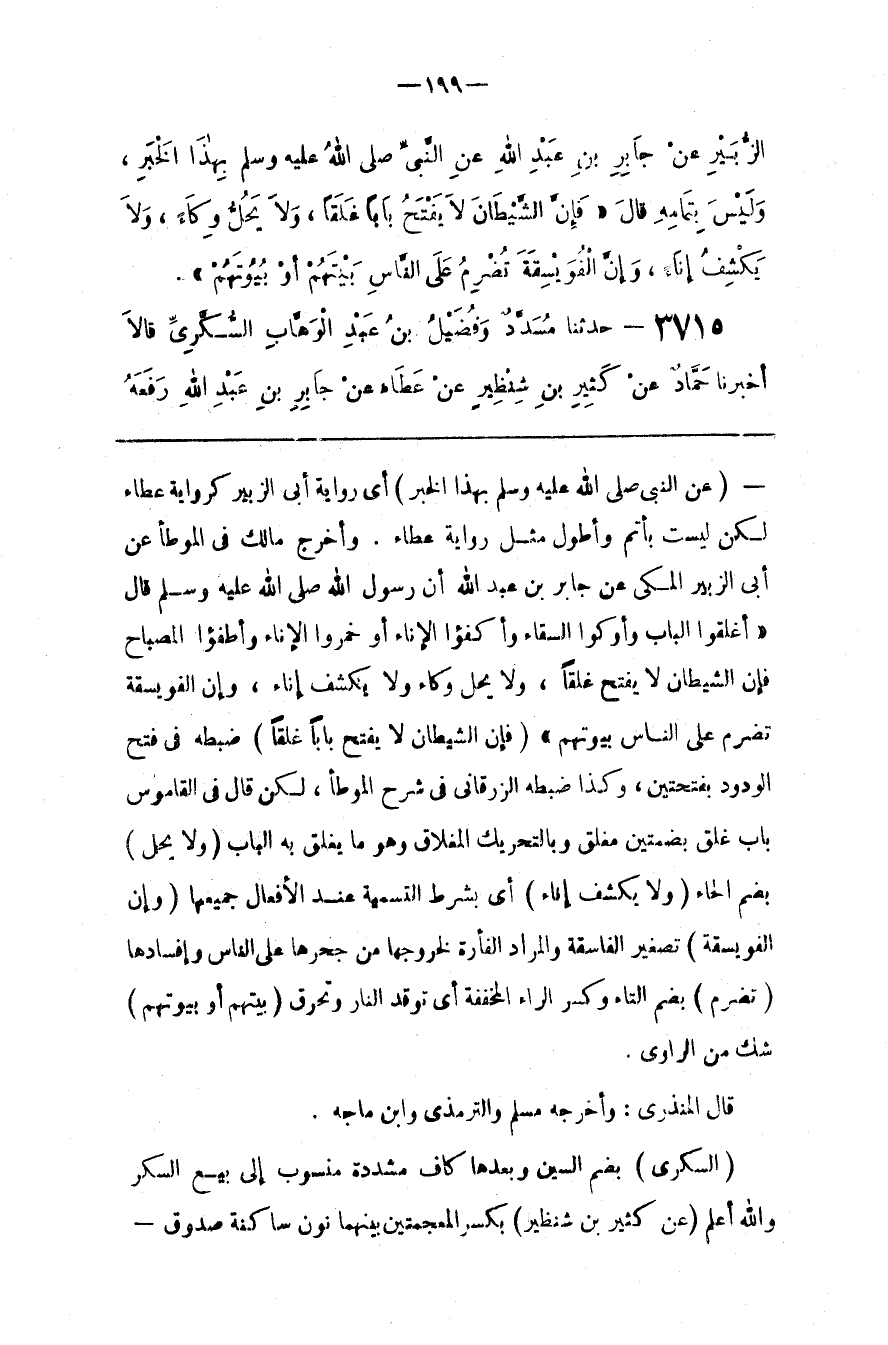 —١٩٩—
الزُّبَيْرِ عنْ جَابِرِ بنِ عَبْدِ اللهِ عنِ النَّبيِّ صلى اللهُ عليه وسلم بِهٰذَا الْخَبَرِ ،
وَلَيْسَ بِتَمَامِهِ قالَ « فَإِنَّ الشَّيْطَانَ لاَ يَفْتَحُ بَاباً غَلَقاً ، وَلاَ يَحُلُّ وِكَاءً ، وَلاَ
يَكْشِفُ إنَاءً ، وَإنَّ الْفُوَيْسِقَةَ تُضْرِمُ عَلَى النَّاسِ بَيْتَهُمْ أوْ بُيُوتَهُمْ » .
٣٧١٥ — حدثنا مُسَدَّدٌ وَفُضَيْلُ بنُ عَبْدِ الْوَهَّابِ السُّكَّرِيِّ قالاَ
أخبرنا حَمَّادٌ عنْ كَثِيرِ بنِ شِنْظِيرٍ عنْ عَطَاء عنْ جَابِرِ بنِ عَبْدِ اللهِ رَفَعَهُ
— ( عن النبى صلى الله عليه وسلم بهذا الخبر ) أى رواية أبى الزبير كرواية عطاء
لكن ليست بأتم وأطول مثل رواية عطاء . وأخرج مالك فى الموطأ عن
أبى الزبير المكى عن جابر بن عبد الله أن رسول الله صلى الله عليه وسلم قال
« أغلقوا الباب وأوكوا السقاء وأكفؤا الإناء أو خمروا الإناء وأطفؤا المصباح
فإن الشيطان لا يفتح غلقاً ، ولا يحل وكاء ولا يكشف إناء ، وإن الفويسقة
تضرم على الناس بيوتهم » ( فإن الشيطان لا يفتح باباً غلقاً ) ضبطه فى فتح
الودود بفتحتين ، وكذا ضبطه الزرقانى فى شرح الموطأ ، لكن قال فى القاموس
باب غلق بضمتين مغلق وبالتحريك المغلاق وهو ما يغلق به الباب ( ولا يحل )
بضم الحاء ( ولا يكشف إناء ) أى بشرط التسمية عند الأفعال جميعها ( وإن
الفويسقة ) تصغير الفاسقة والمراد الفأرة لخروجها من جحرها على الناس وإفسادها
( تضرم ) بضم التاء وكسر الراء المخففة أى توقد النار وتحرق ( بيتهم أو بيوتهم )
شك من الراوى .
قال المنذرى : وأخرجه مسلم والترمذى وابن ماجه .
( السكرى ) بضم السين وبعدها كاف مشددة منسوب إلى بيع السكر
والله أعلم ( عن كثير بن شنظير ) بكسر المعجمتين بينهما نون ساكنة صدوق —